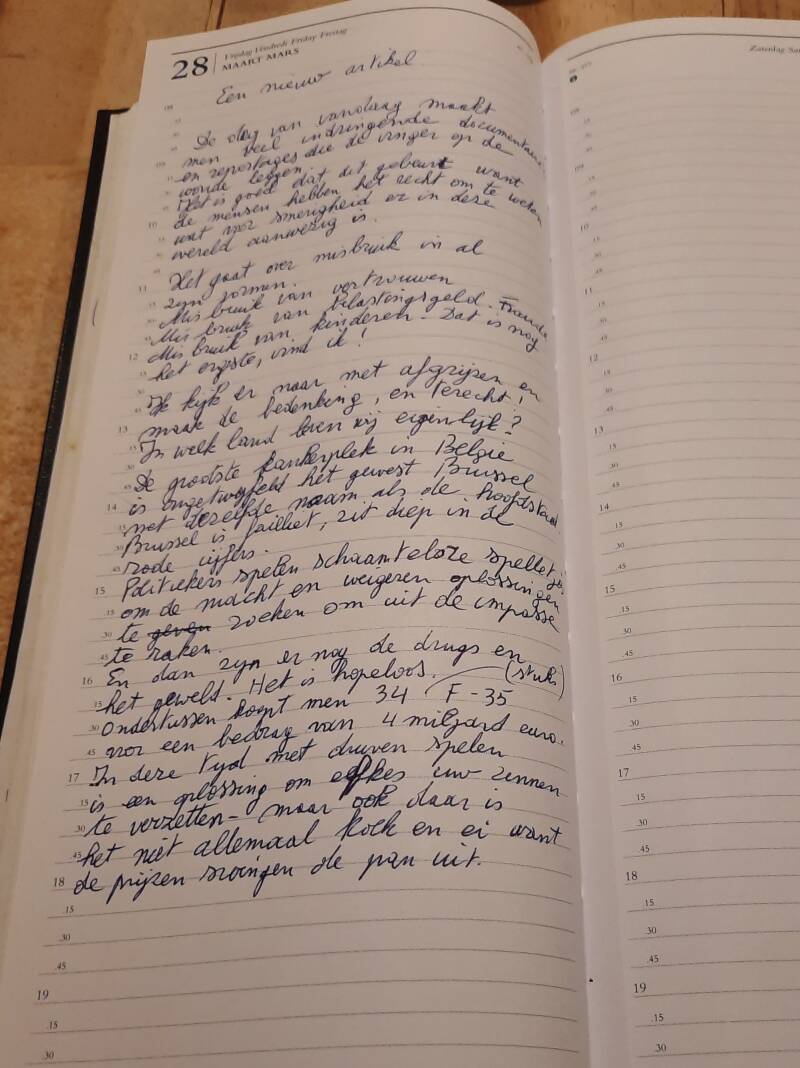 28
Vrijdag Vendredi Friday Freitag
MAART MARS
Een nieuw artikel.
De dag van vandaag maakt
men veel indringende documentaires
en reportages die de vinger op de
wonde leggen.
Het is goed dat dit gebeurt want
de mensen hebben het recht om te weten
wat voor smerigheid er in deze
wereld aanwezig is.
Het gaat over misbruik in al
zijn vormen.
Misbruik van vertrouwen
Misbruik van belastingsgeld. Fraude
Misbruik van kinderen - Dat is nog
het ergste, vind ik!
Ik kijk er naar met afgrijzen en
maak de bedenking, en terecht!
In welk land leven wij eigenlijk?
De grootste kankerplek in België
is ongetwijfeld het gewest Brussel
met dezelfde naam als de hoofdstad.
Brussel is failliet, zit diep in de
rode cijfers.
Politiekers spelen schaamteloze spelletjes
om de macht en weigeren oplossingen
te geven zoeken om uit de impasse
te raken.
En dan zijn er nog de drugs en
het geweld. Het is hopeloos. (stuks)
Ondertussen koopt men 34 F-35
voor een bedrag van 4 miljard euro.
In deze tijd met druiven spelen
is een oplossing om effkes uw zinnen
te verzetten - maar ook daar is
het niet allemaal koek en ei want
de prijzen swingen de pan uit.
08
.15
.30
.45
09
10
11
12
13
14
15
16
17
18
.15
.30
.45
19
.15
.30
Zaterdag
10
11
12
13
14
15
16
17
18
19